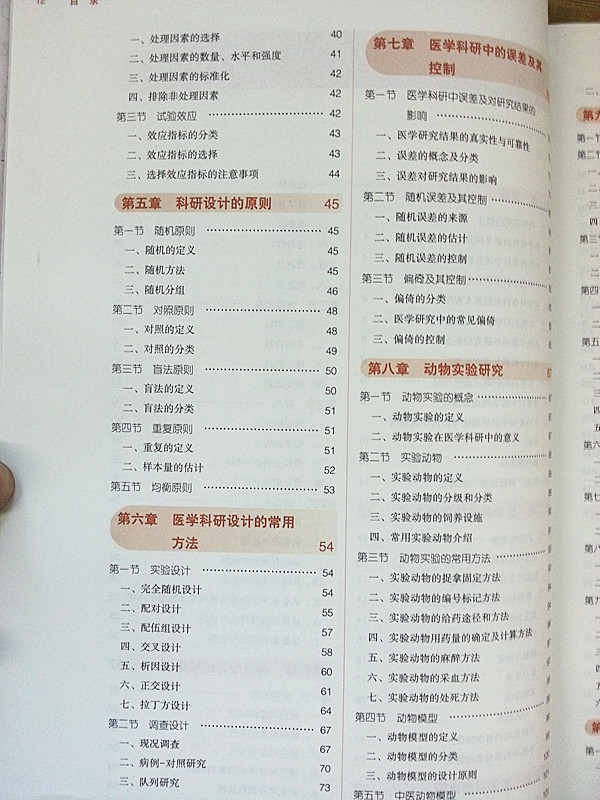 目 录
一、处理因素的选择 40
二、处理因素的数量、水平和强度 41
三、处理因素的标准化 42
四、排除非处理因素 42
第三节 试验效应 42
一、效应指标的分类 43
二、效应指标的选择 43
三、选择效应指标的注意事项 44
第五章 科研设计的原则 45
第一节 随机原则 45
一、随机的定义 45
二、随机方法 45
三、随机分组 46
第二节 对照原则 48
一、对照的定义 48
二、对照的分类 49
第三节 盲法原则 50
一、盲法的定义 50
二、盲法的分类 51
第四节 重复原则 51
一、重复的定义 51
二、样本量的估计 52
第五节 均衡原则 53
第六章 医学科研设计的常用
方法 54
第一节 实验设计 54
一、完全随机设计 54
二、配对设计 55
三、配伍组设计 57
四、交叉设计 58
五、析因设计 60
六、正交设计 61
七、拉丁方设计 64
第二节 调查设计 67
一、现况调查 67
二、病例-对照研究 70
三、队列研究 73
第七章 医学科研中的误差及其
控制
第一节 医学科研中误差及对研究结果的
影响
一、医学研究结果的真实性与可靠性
二、误差的概念及分类
三、误差对研究结果的影响
第二节 随机误差及其控制
一、随机误差的来源
二、随机误差的估计
三、随机误差的控制
第三节 偏倚及其控制
一、偏倚的分类
二、医学研究中的常见偏倚
三、偏倚的控制
第八章 动物实验研究
第一节 动物实验的概念
一、动物实验的定义
二、动物实验在医学科研中的意义
第二节 实验动物
一、实验动物的定义
二、实验动物的分级和分类
三、实验动物的饲养设施
四、常用实验动物介绍
第三节 动物实验的常用方法
一、实验动物的捉拿固定方法
二、实验动物的编号标记方法
三、实验动物的给药途径和方法
四、实验动物用药量的确定及计算方法
五、实验动物的麻醉方法
六、实验动物的采血方法
七、实验动物的处死方法
第四节 动物模型
一、动物模型的定义
二、动物模型的分类
三、动物模型的设计原则
第五节 中医动物模型